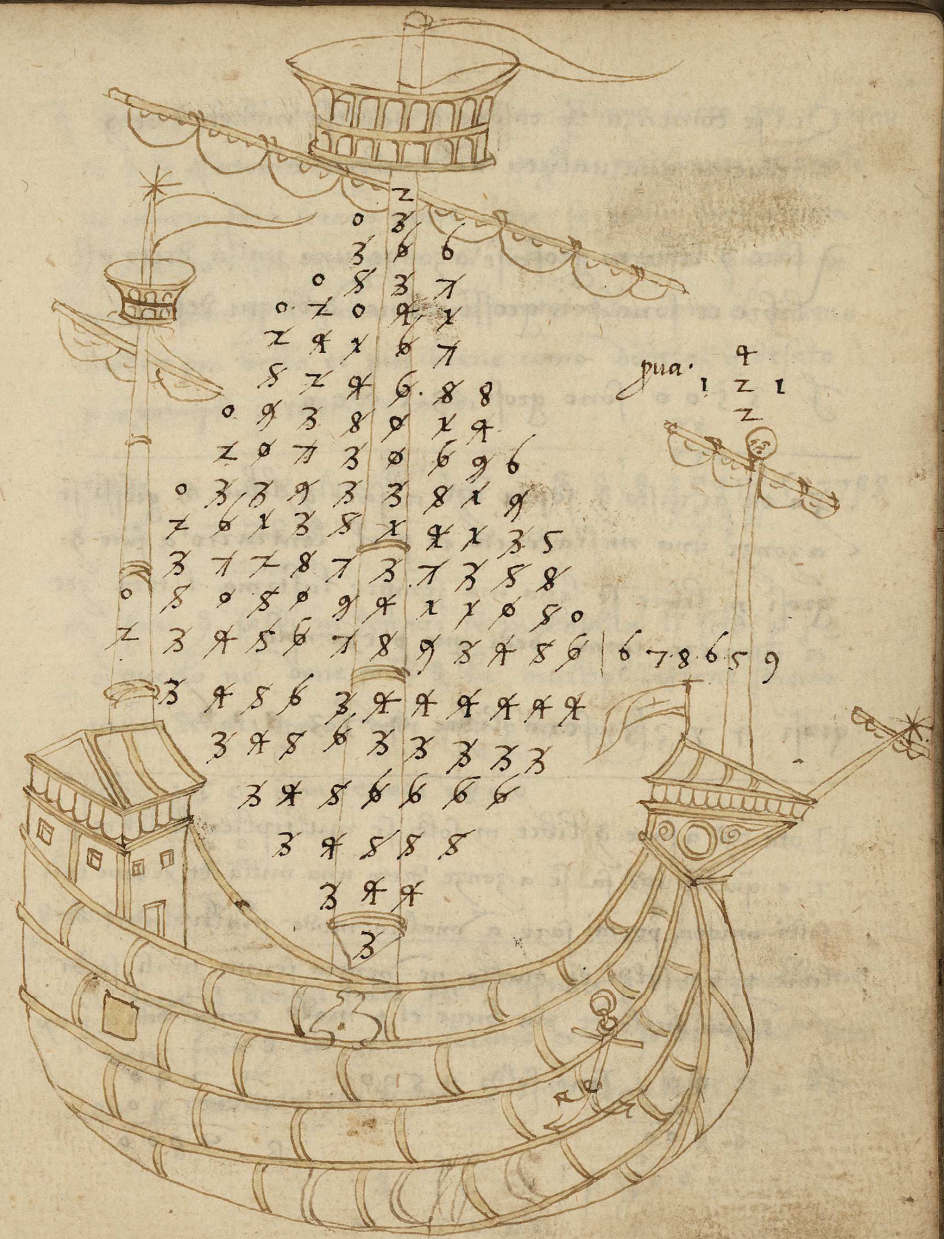 2
0 3
3 0 6
0 5 3 7
0 2 0 4 1
2 4 1 6 7
5 2 4 6 8 8
0 9 3 8 0 1 4
2 0 7 3 0 6 9 6
0 3 3 9 3 3 8 1 9
2 6 1 3 5 1 4 1 3 5
3 7 2 8 7 3 7 3 5 8
0 5 0 5 0 9 4 1 1 0 5 0
2 3 4 5 6 7 8 9 3 4 5 6 | 6 7 8 6 5 9
3 4 5 6 3 4 4 4 4 4 4
3 4 5 6 3 3 3 3 3
3 4 5 6 6 6 6
3 4 5 5 5
3 4 4
3
4
pua. 1 2 1
2